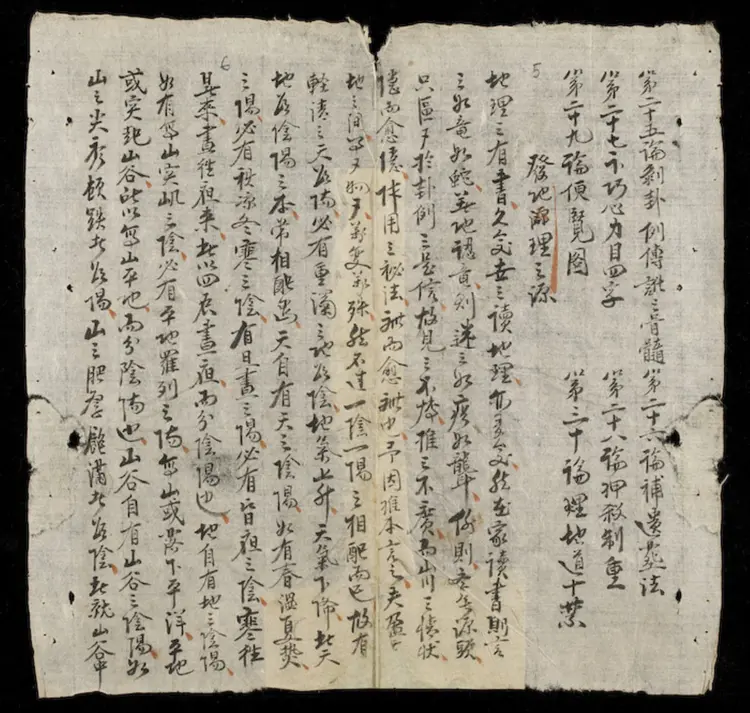 第二十五論剥卦例傳訛之骨髓　第二十六論補遺葬法
第二十七不巧心力目四字　第二十八論押殺制重
第二十九論便覽圖　第三十論理地道十禁
發地源理之源
地理之有書久矣世之讀地理亦多矣然在家讀書則言
之如竜如蛇 地認竜則迷之如痴如聾 則 源頭
只區 於卦例之是信故見之不 推之不廣而山川之情狀
隱而愈隱作用之秘法訛而愈訛也予因推本言之夫盈
地之間 変萬殊然不过一陰一陽之相配而已故有
輕清之天為陽必有重濁之地為陰地氣上升天氣下降此天
地為陰陽之本常相配也天自有天之陰陽如有春温夏焚
之陽必有秋凉冬寒之陰有日晝之陽必有皆夜之陰寒往
暑來晝往夜來此以四辰晝夜而分陰陽也地自有地之陰陽
如有高山突 之陰必有平地羅列之陽高山或落下平洋平地
或突起山谷此以高山平地而分陰陽也山谷自有山谷之陰陽如
山之尖 頓跌者為陽山之肥厚飽滿者為陰此就山谷中